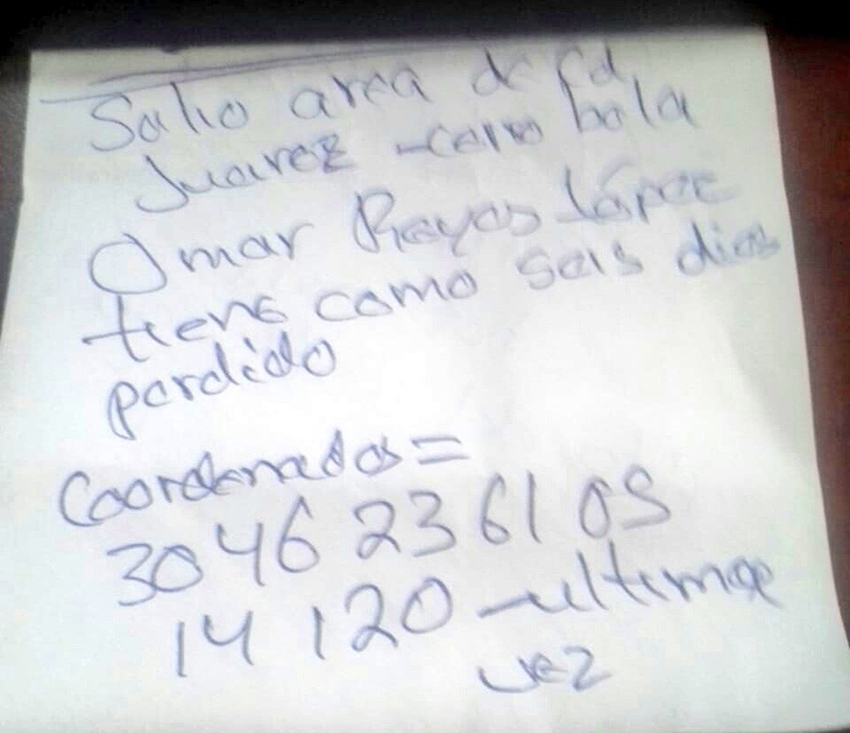 Salio area de Cd,
Juarez - cerro bola
Omar Reyes López
tiene como seis dias
perdido
Coordenadas =
30 46 23 61 05
14 120 - ultima
vez